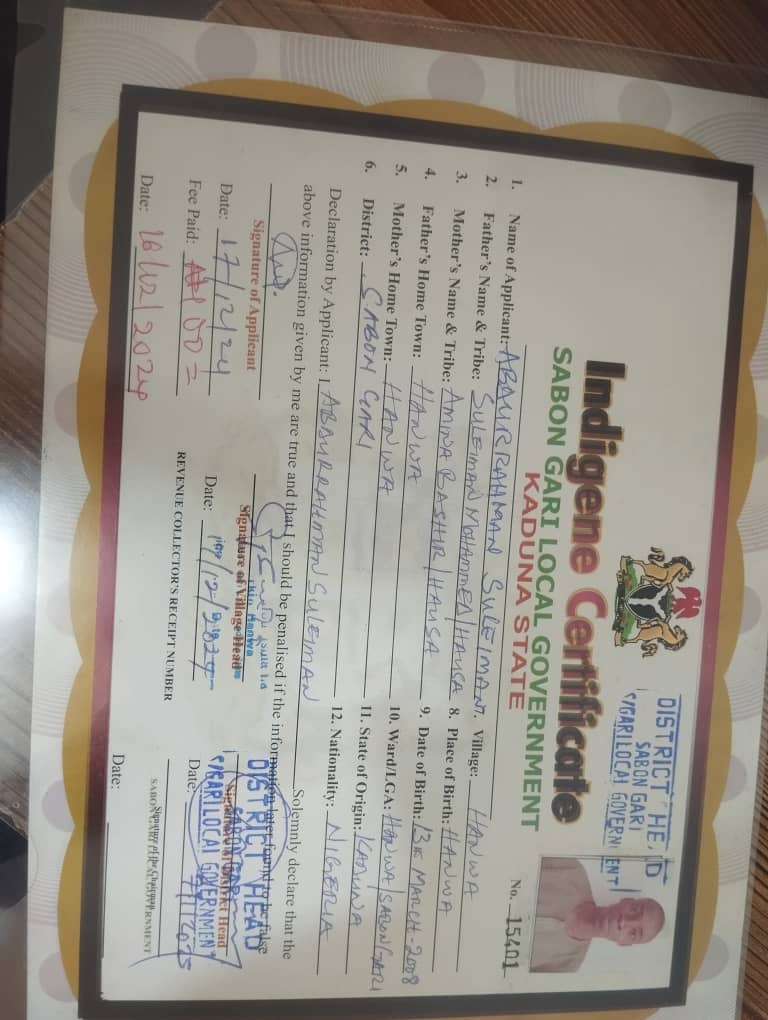 DISTRICT HE D
SABON GARI
S/GARI LOCAL GOVERN ENT
Indigene Certificate
SABON GARI LOCAL GOVERNMENT
KADUNA STATE
No. 15401
1. Name of Applicant: ABDURRAHMAN SULEIMAN
7. Village: HANWA
2. Father's Name & Tribe: SULEIMAN MOHAMMED/HAUSA
8. Place of Birth: HANWA
3. Mother's Name & Tribe: AMINA BASHIR/HAUSA
9. Date of Birth: 13 MARCH-2008
4. Father's Home Town: HANWA
10. Ward/LGA: HANWA/SABON GARI
5. Mother's Home Town: HANWA
11. State of Origin: KADUNA
6. District: SABON GARI
12. Nationality: NIGERIA
Declaration by Applicant: I ABDURRAHMAN SULEIMAN Solemnly declare that the
above information given by me are true and that I should be penalised if the information later found to be false
Signature of Applicant
Signature of Village Head
Hanwa
DISTRICT HEAD
SABON GARI
S/GARI LOCAL GOVERNMENT
Signature of District Head
Date: 17/12/24
Date: 17/12/2024
Date: 7/1/2025
Fee Paid: ₦100=
REVENUE COLLECTOR'S RECEIPT NUMBER
Signature of the Chairman
SABON GARI LOCAL GOVERNMENT
Date: 16/12/2024
Date: